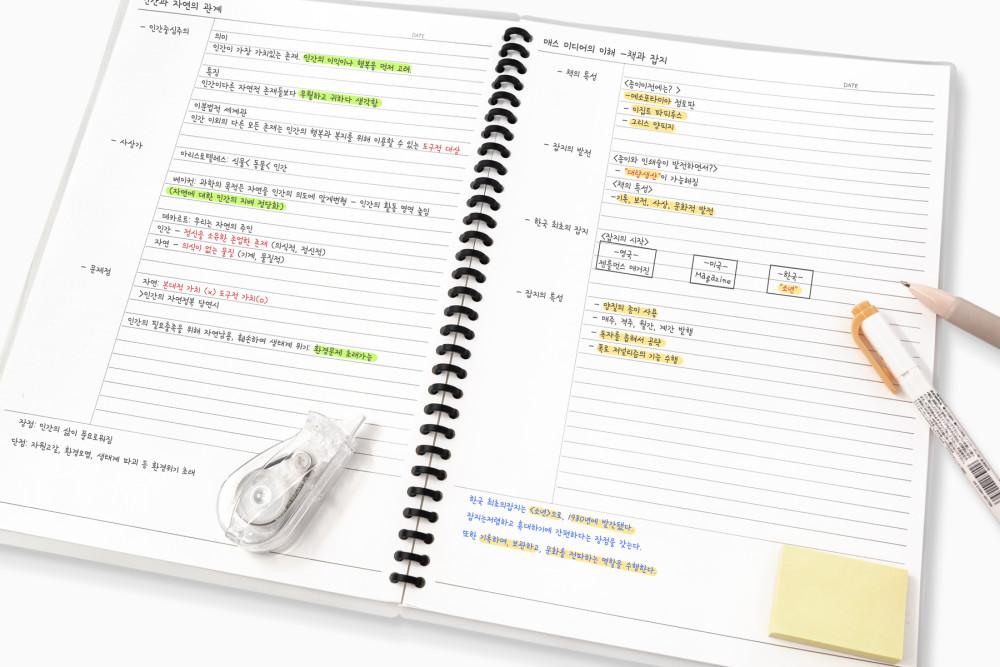 인간과 자연의 관계
DATE
- 인간중심주의
의미
인간이 가장 가치있는 존재. 인간의 이익이나 행복을 먼저 고려.
특징
인간이다른 자연적 존재들보다 우월하고 귀하다 생각함
이분법적 세계관
인간 이외의 다른 모든 존재는 인간의 행복과 복지를 위해 이용할 수 있는 도구적 대상
- 사상가
아리스토텔레스: 식물< 동물< 인간
베이컨: 과학의 목적은 자연을 인간의 의도에 맞게변형 - 인간의 활동 영역 높임
(자연에 대한 인간의 지배 정당화)
데카르트: 우리는 자연의 주인
인간 - 정신을 소유한 존엄한 존재 (의식적, 정신적)
자연 - 의식이 없는 물질 (기계, 물질적)
- 문제점
자연: 본래적 가치 (x) 도구적 가치(o)
>인간의 자연정복 당연시
인간의 필요충족을 위해 자연남용, 훼손하여 생태계 위기: 환경문제 초래가능
장점: 인간의 삶이 풍요로워짐
단점: 자원고갈, 환경오염, 생태계 파괴 등 환경위기 초래
매스 미디어의 이해 -책과 잡지
DATE
- 책의 특성
<종이이전에는? >
-메소포타미아 점토판
- 이집트 파피루스
- 그리스 양피지
- 잡지의 발전
<종이와 인쇄술이 발전하면서?>
- "대량생산"이 가능해짐
<책의 특성>
-기록, 보전, 사상, 문화적 발전
- 한국 최초의 잡지
<잡지의 시작>
-영국-
젠틀먼스 매거진
-미국-
Magazine
-한국-
"소년"
- 잡지의 특성
- 양질의 종이 사용
- 매주, 격주, 월간, 계간 발행
- 독자층 좁혀서 공략
- 폭로 저널리즘의 기능 수행
한국 최초의잡지는 <소년>으로, 1980년에 발간됐다.
잡지는저렴하고 휴대하기에 간편하다는 장점을 갖는다.
또한 기록하며, 보관하고, 문화를 전파하는 역할을 수행한다.